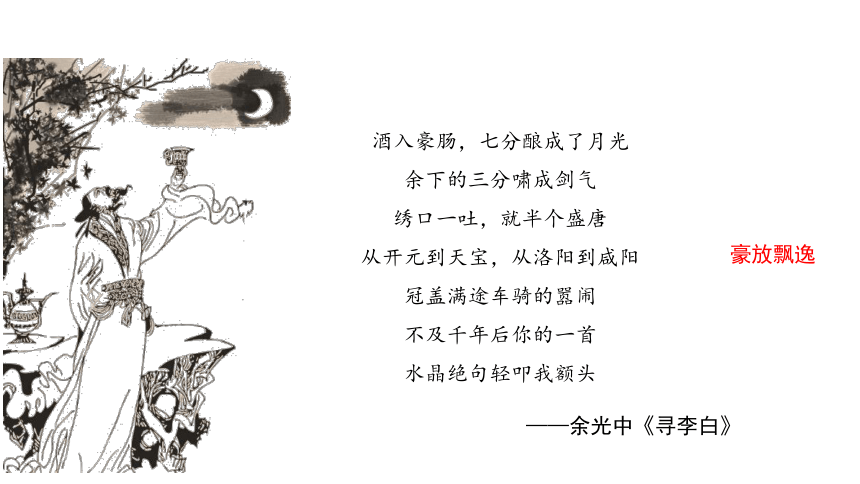 酒入豪肠，七分酿成了月光
余下的三分啸成剑气
绣口一吐，就半个盛唐
从开元到天宝，从洛阳到咸阳
冠盖满途车骑的嚣闹
不及千年后你的一首
水晶绝句轻叩我额头
——余光中《寻李白》
豪放飘逸